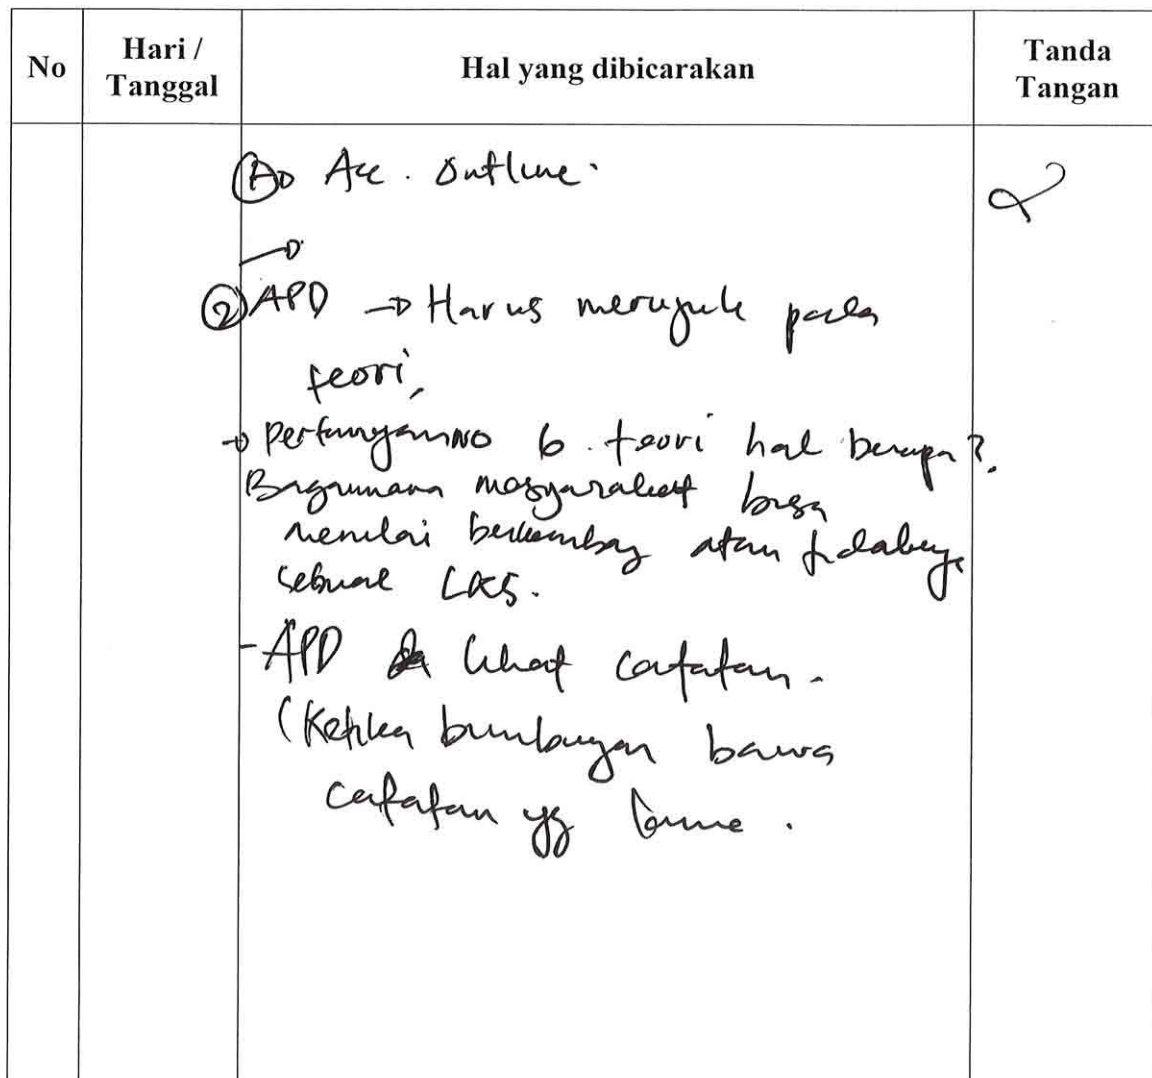 No
Hari /
Tanggal
Hal yang dibicarakan
Tanda
Tangan
Acc. Outline.
② APD → Harus merujuk pada
teori,
→ Pertanyaan no 6. teori hal berapa?
Bagaimana masyarakat bisa
menilai berkembang atau tidaknya
sebuah LKS.
- APD lihat catatan.
(Ketika bimbingan bawa
catatan yg lama.